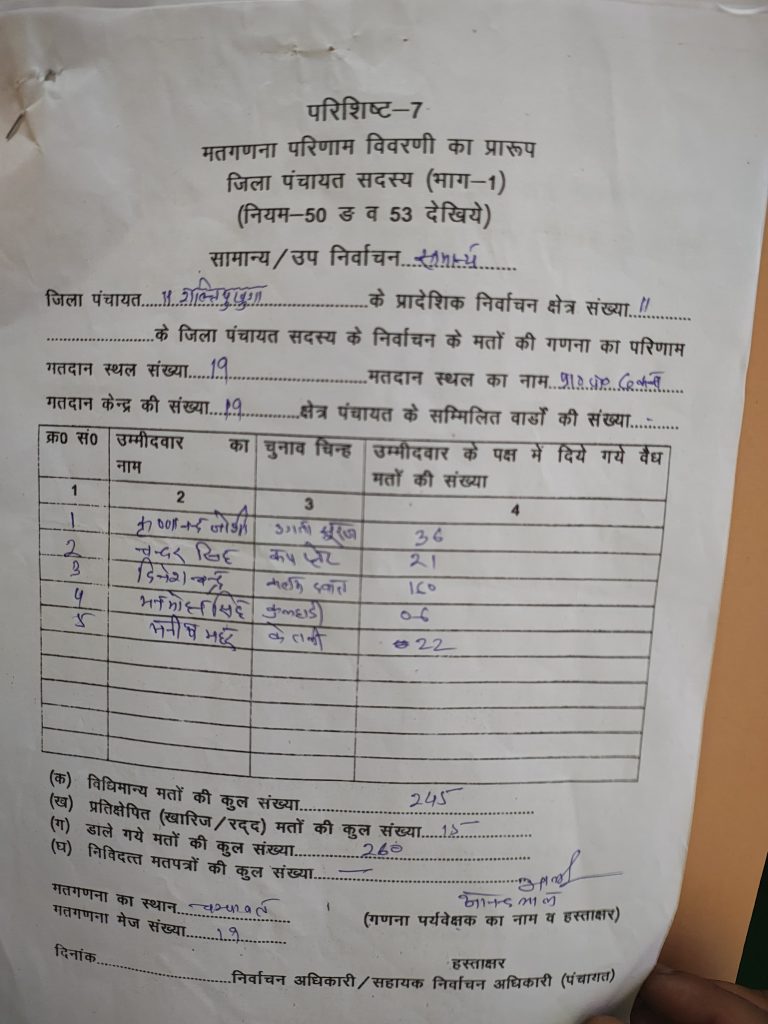 परिशिष्ट-7
मतगणना परिणाम विवरणी का प्रारूप
जिला पंचायत सदस्य (भाग-1)
(नियम-50 ङ व 53 देखिये)
सामान्य/उप निर्वाचन....सामान्य.........
जिला पंचायत....11 शक्तिपुरबुंगा....................के प्रादेशिक निर्वाचन क्षेत्र संख्या..11............
...........................के जिला पंचायत सदस्य के निर्वाचन के मतों की गणना का परिणाम
गतदान स्थल संख्या....19...........................मतदान स्थल का नाम
गतदान केन्द्र की संख्या...19.............क्षेत्र पंचायत के सम्मिलित वार्डों की संख्या...-......
क्र0 सं0 उम्मीदवार का नाम चुनाव चिन्ह उम्मीदवार के पक्ष में दिये गये वैध मतों की संख्या
1 2 3 4
1 कृष्णानन्द जोशी उगता सूरज 36
2 चन्दर सिंह कप प्लेट 21
3 दिनेश चन्द्र कलम दवात 160
4 मनमोहन सिंह कुल्हाडी 06
5 मनीष केतली 22
(क) विधिमान्य मतों की कुल संख्या.............245.............
(ख) प्रतिक्षेपित (खारिज/रद्द) मतों की कुल संख्या...15............
(ग) डाले गये मतों की कुल संख्या............260...............
(घ) निविदत्त मतपत्रों की कुल संख्या.......—..............
मतगणना का स्थान...चम्पावत....
आनन्द लाल
मतगणना मेज संख्या.....19........
(गणना पर्यवेक्षक का नाम व हस्ताक्षर)
हस्ताक्षर
दिनांक...........................निर्वाचन अधिकारी/सहायक निर्वाचन अधिकारी (पंचागत)